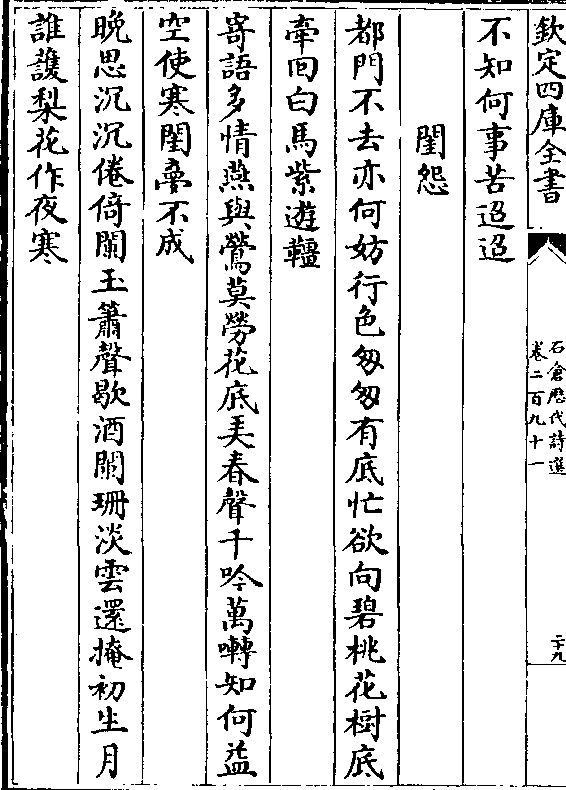 欽定四庫全書
石倉歷代詩選
卷二百九十一
二十九
不知何事苦迢迢
閨怨
都門不去亦何妨行色匆匆有底忙欲向碧桃花樹底
牽回白馬紫遊韁
寄語多情燕與鶯莫勞花底弄春聲千吟萬囀知何益
空使寒閨夢不成
晚思沉沉倦倚闌玉簫聲歇酒闌珊淡雲還掩初生月
誰護梨花作夜寒